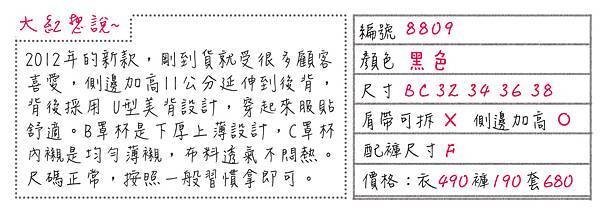 大紅想說~
2012年的新款，剛到貨就受很多顧客
喜愛，側邊加高11公分延伸到後背，
背後採用 U型美背設計，穿起來服貼
舒適。B罩杯是下厚上薄設計，C罩杯
內襯是均勻薄襯，布料透氣不悶熱。
尺碼正常，按照一般習慣拿即可。
編號 8809
顏色 黑色
尺寸 BC 32 34 36 38
肩帶可拆 X 側邊加高 O
配褲尺寸 F
價格：衣490褲190套680